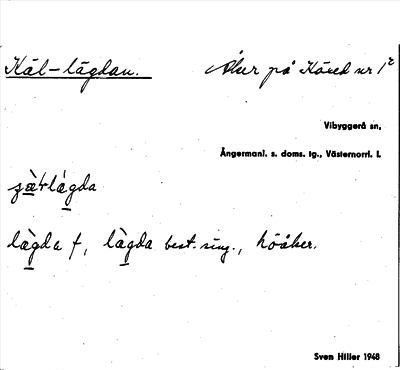 Käl-lägdan. Åker på Käxed nr 1²
Vibyggerå sn,
Ångermanl. s. doms. tg., Västernorrl. l.
lägda
lägda f, lägda best. sing., höåker.
Sven Hiller 1948